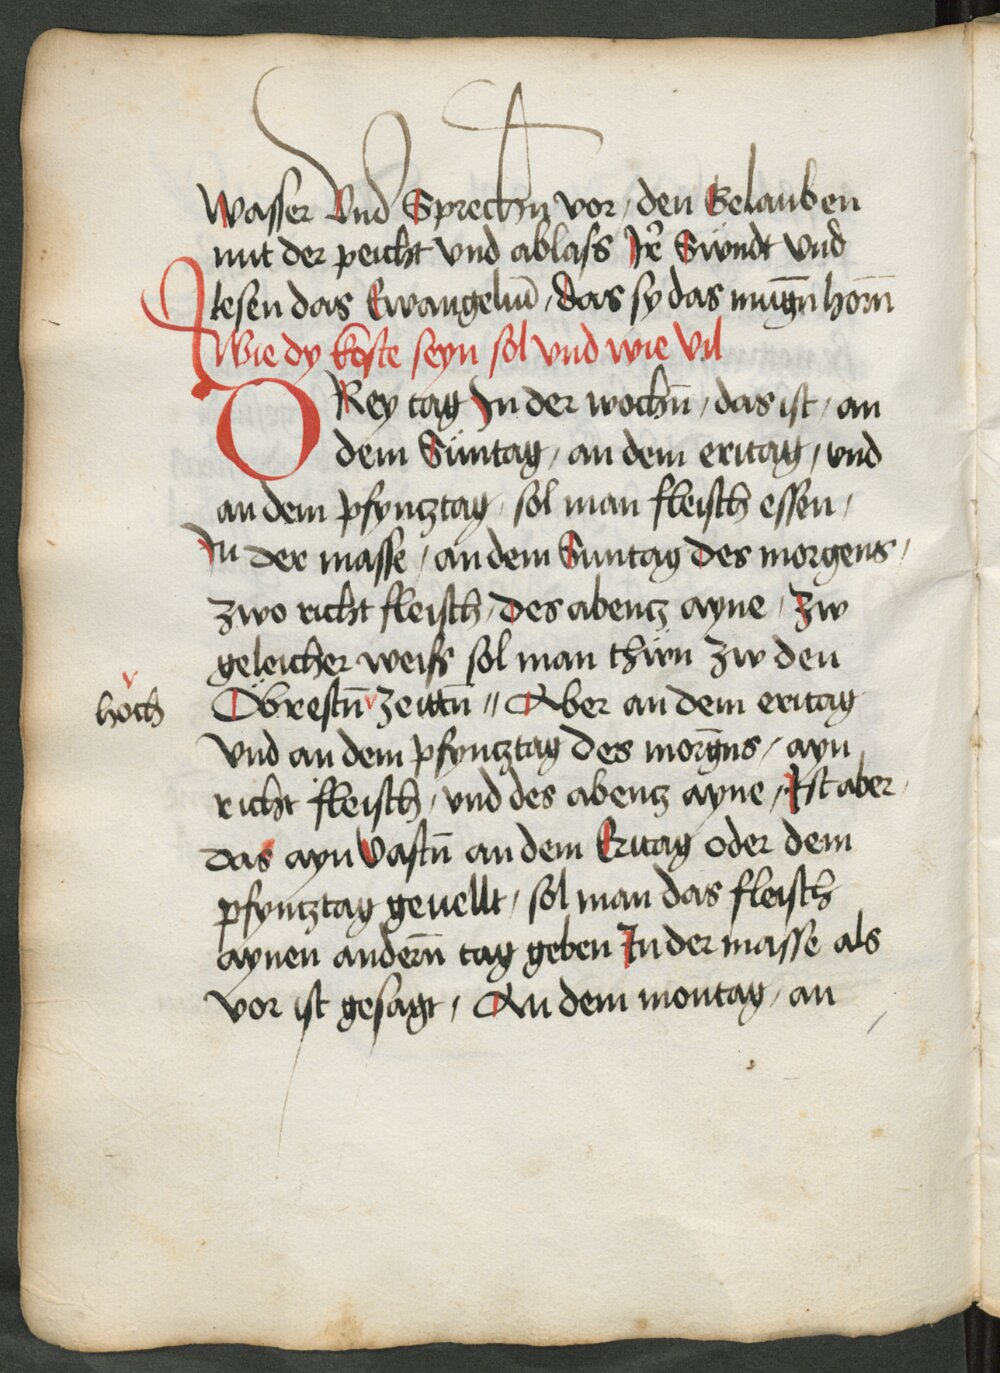 Wasser Vnd Sprechn vor / den Gelauben
mit der peicht vnd ablass Jr̄ Sӱndt vnd
lesen das Ewangeliū / das sy das mugn̄ horn̄
Wie dy koste seyn sol vnd wie vil
DRey tag Jn der wochn̄ / das ist / an
dem Sӱntag / an dem eritag / vnd
an dem pfyncztag / sol man fleisch essen /
Jn der masse / an dem Suntag des morgens /
zwo richt fleisch / des abencz ayne / zw
geleicher weiss sol man thӱn zw den
höch
Öbrestn̄ zeittn̄ // Aber an dem eritag
vnd an dem pfyncztag des morgn̄s / ayn
richt fleisch / vnd des abencz ayne / Jst aber /
das ayn vastn̄ an dem Eritag oder dem
pfyncztag geuellt / sol man das fleisch
aynen andern̄ tag geben Jn der masse als
vor ist gesagt / An dem montag / an